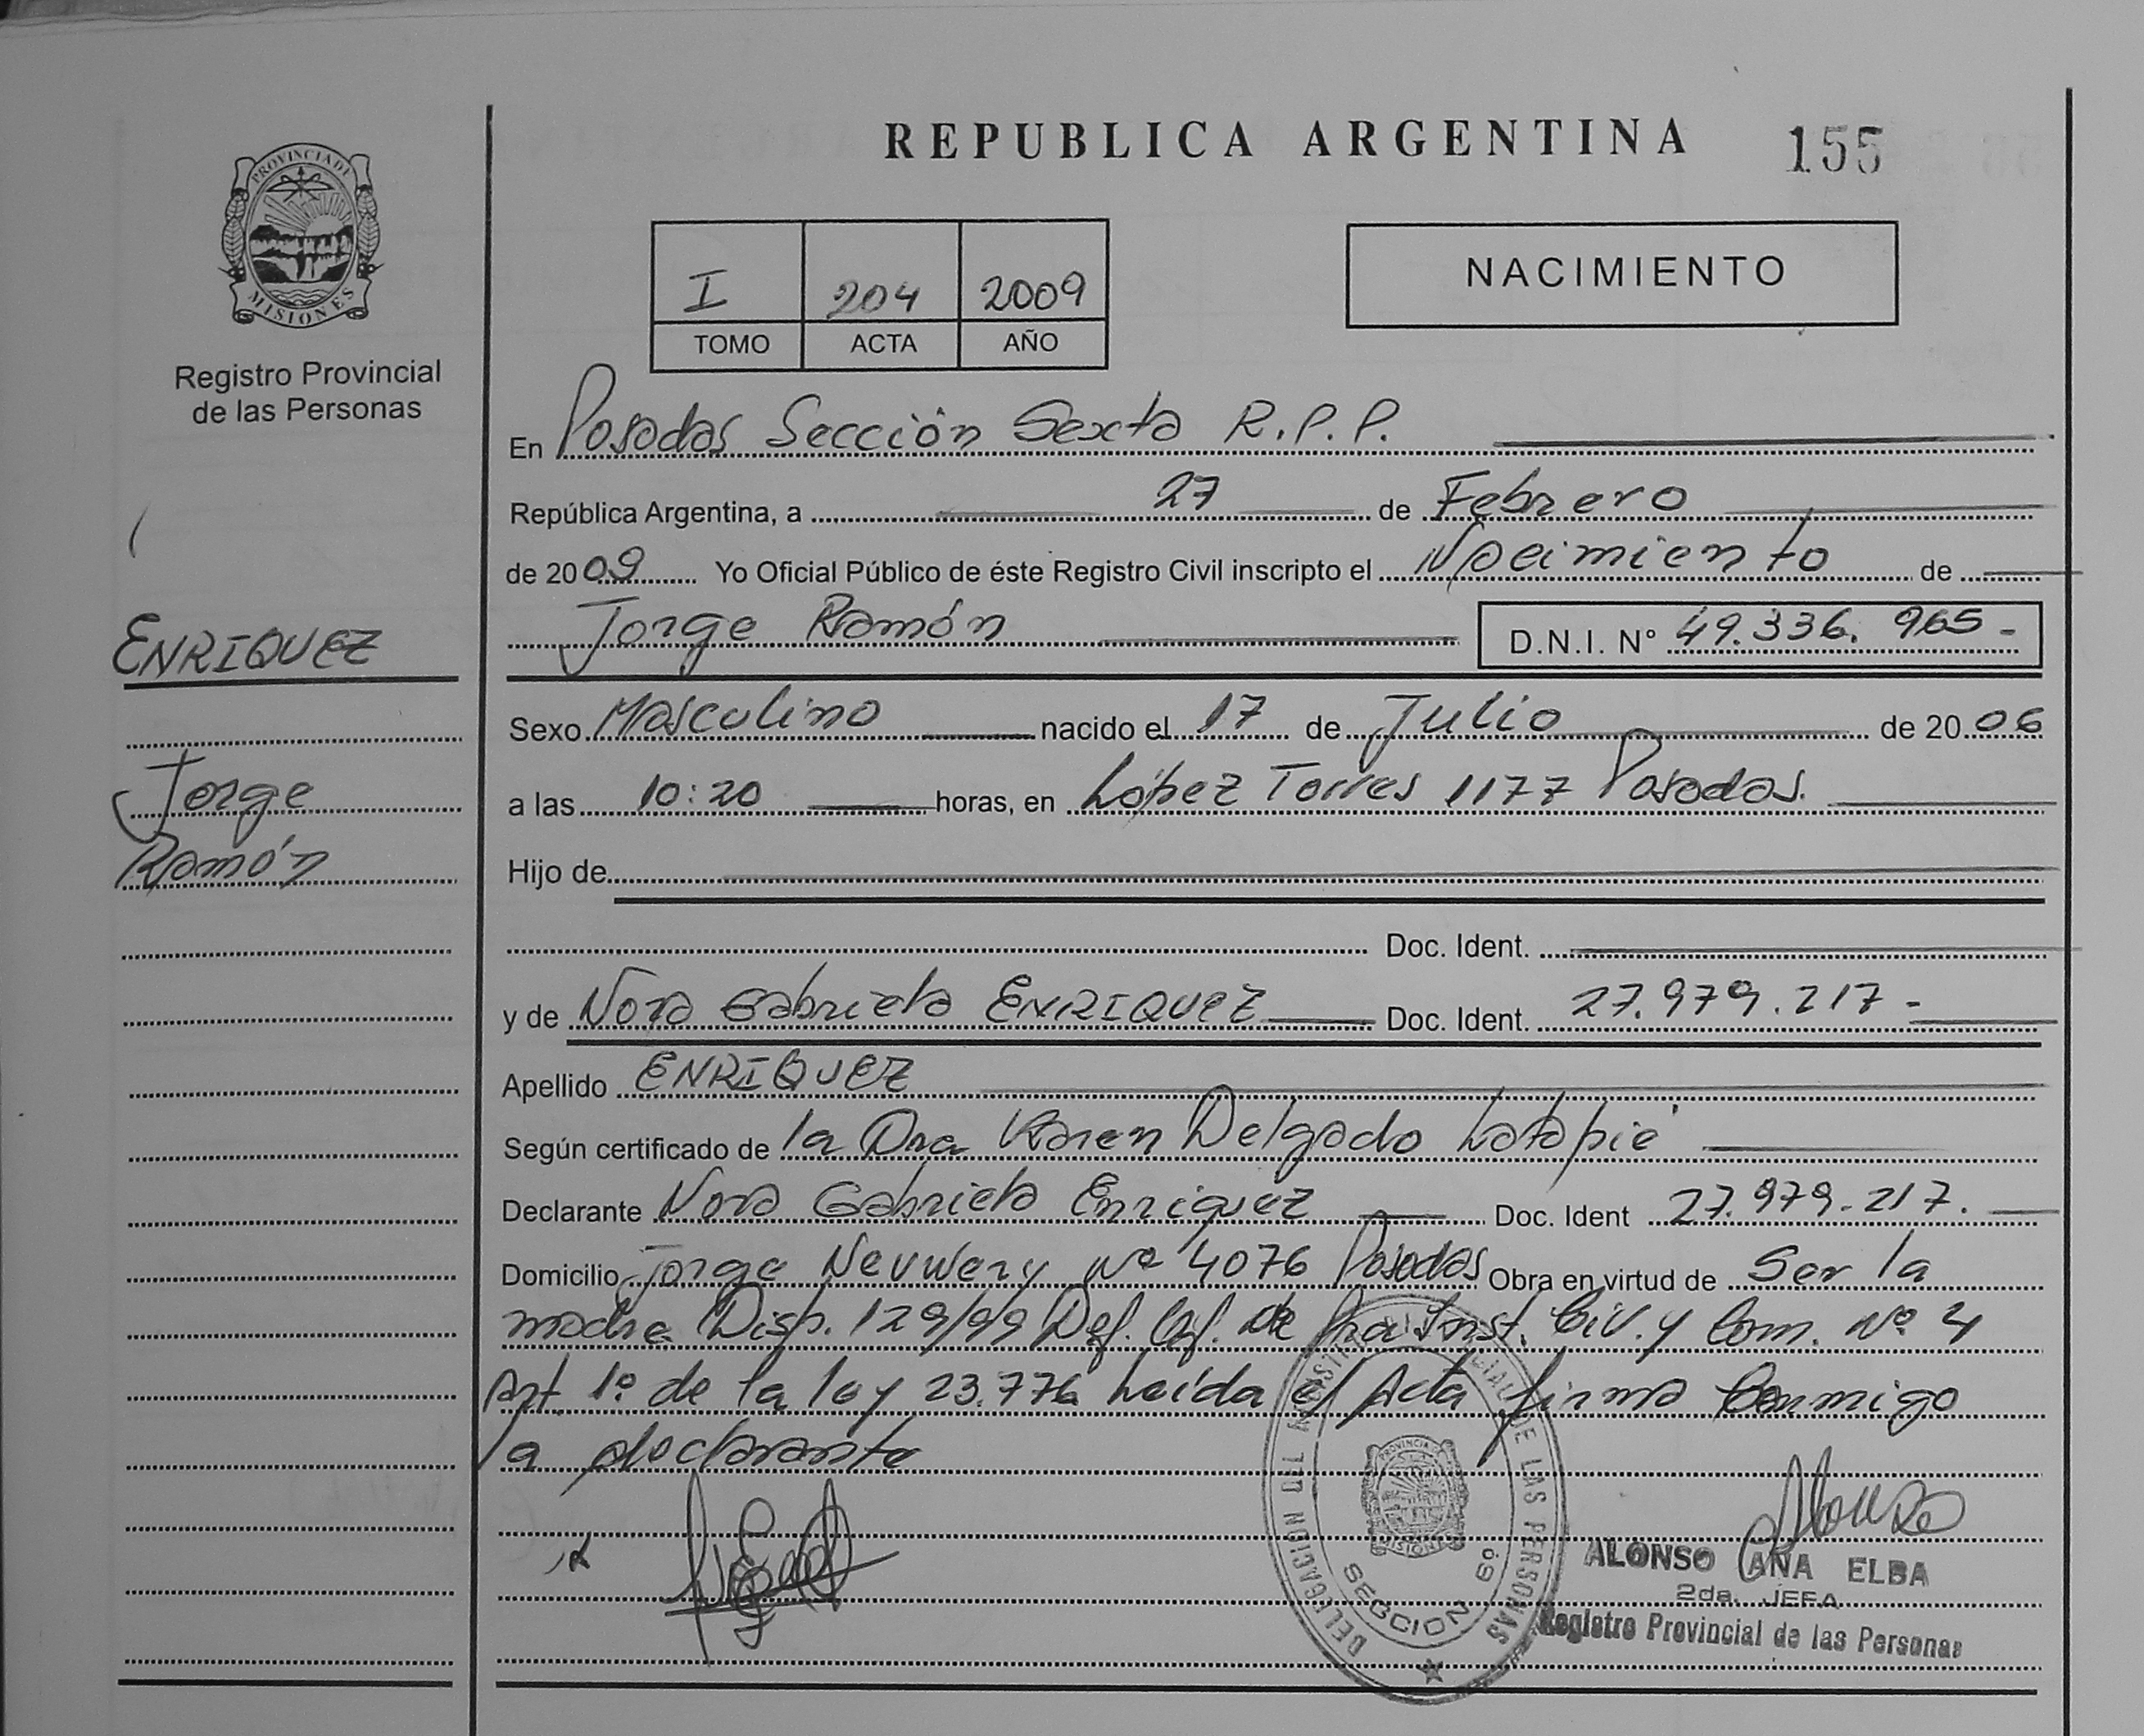 REPUBLICA ARGENTINA 155
PROVINCIA DE
MISIONES
Registro Provincial
de las Personas
I 204 2009
TOMO ACTA AÑO
NACIMIENTO
En Posadas Sección Sexta R.P.P.
República Argentina, a 27 de Febrero
de 2009 Yo Oficial Público de éste Registro Civil inscripto el Nacimiento de
Jorge Ramón D.N.I. N° 49.336.965-
ENRIQUEZ
Jorge
Ramón
Sexo Masculino nacido el 17 de Julio de 2006
a las 10:20 horas, en López Torres 1177 Posadas.
Hijo de
Doc. Ident.
y de Nora Gabriela ENRIQUEZ Doc. Ident. 27.979.217-
Apellido ENRIQUEZ
Según certificado de la Dra Karen Delgado Latapie
Declarante Nora Gabriela Enriquez Doc. Ident 27.979.217.
Domicilio Jorge Newery Nº 4076 Posadas Obra en virtud de Ser la
madre Disp. 129/99 Def. Of. de Inst. Civ. y Com. Nº 4
Art. 1º de la ley 23.776 Leída el Acta firma Conmigo
la declarante
DELEGACION DEL DE LAS PERSONAS
PROVINCIA
MISIONES
SECCION 6º
Alonso
ALONSO ANA ELBA
2da. JEFA
Registro Provincial de las Personas